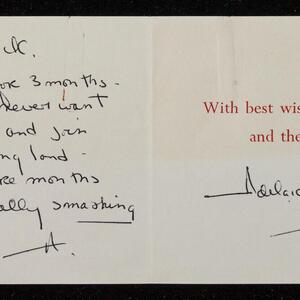 K.
3 months -
never want
and join
land -
months
ally smashing
A.
With best wis
and the
Adelaid